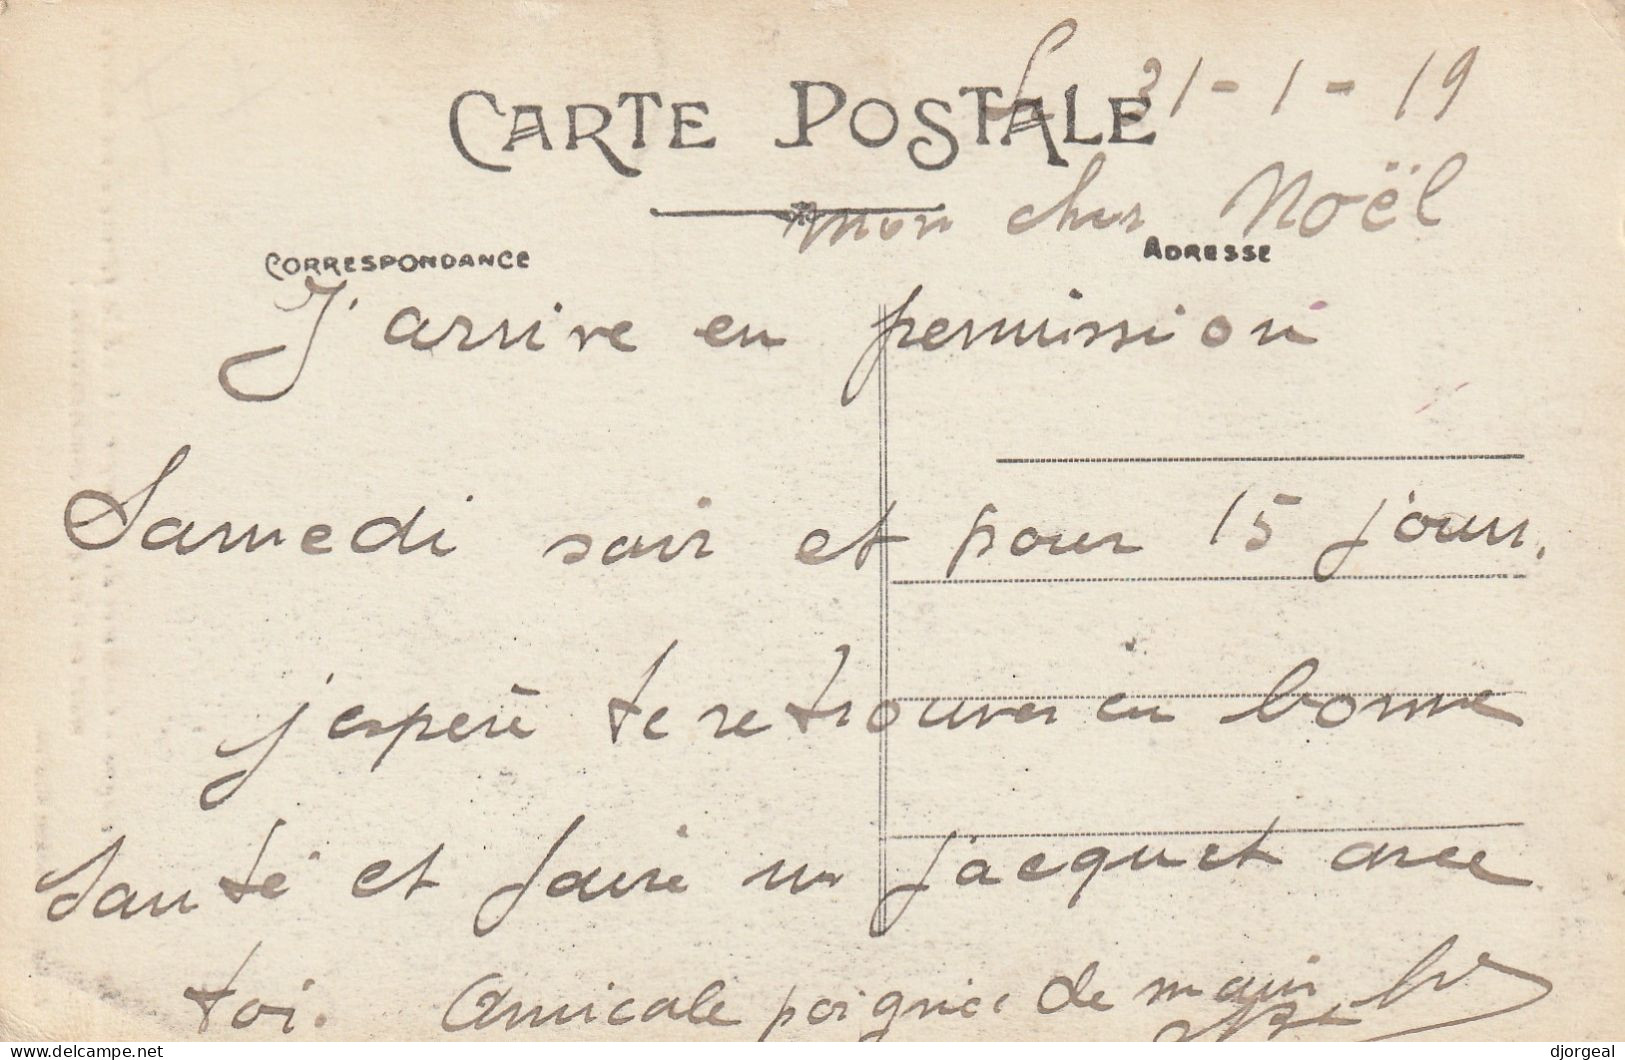 CARTE POSTALE
L 31-1-19
mon cher Noël
CORRESPONDANCE
ADRESSE
J'arrive en permission
Samedi soir et pour 15 jours.
j'espère te retrouver en bonne
santé et faire un jacquet avec
toi. Amicale poignée de main
delcampe.net
djorgeal